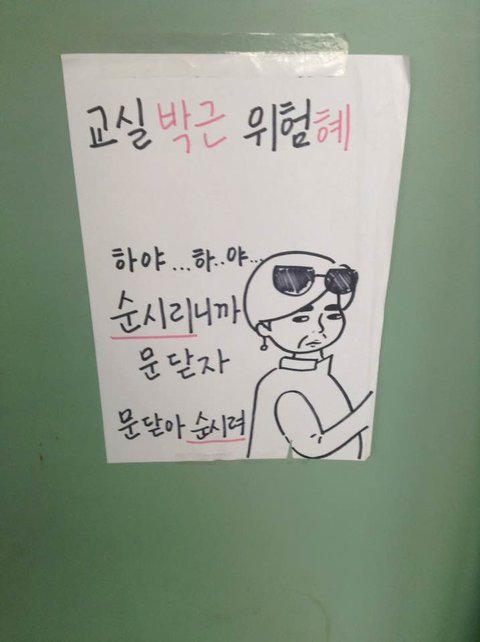 교실 박근 위험혜
하야...하..야...
순시리니까
문 닫자
문닫아 순시려